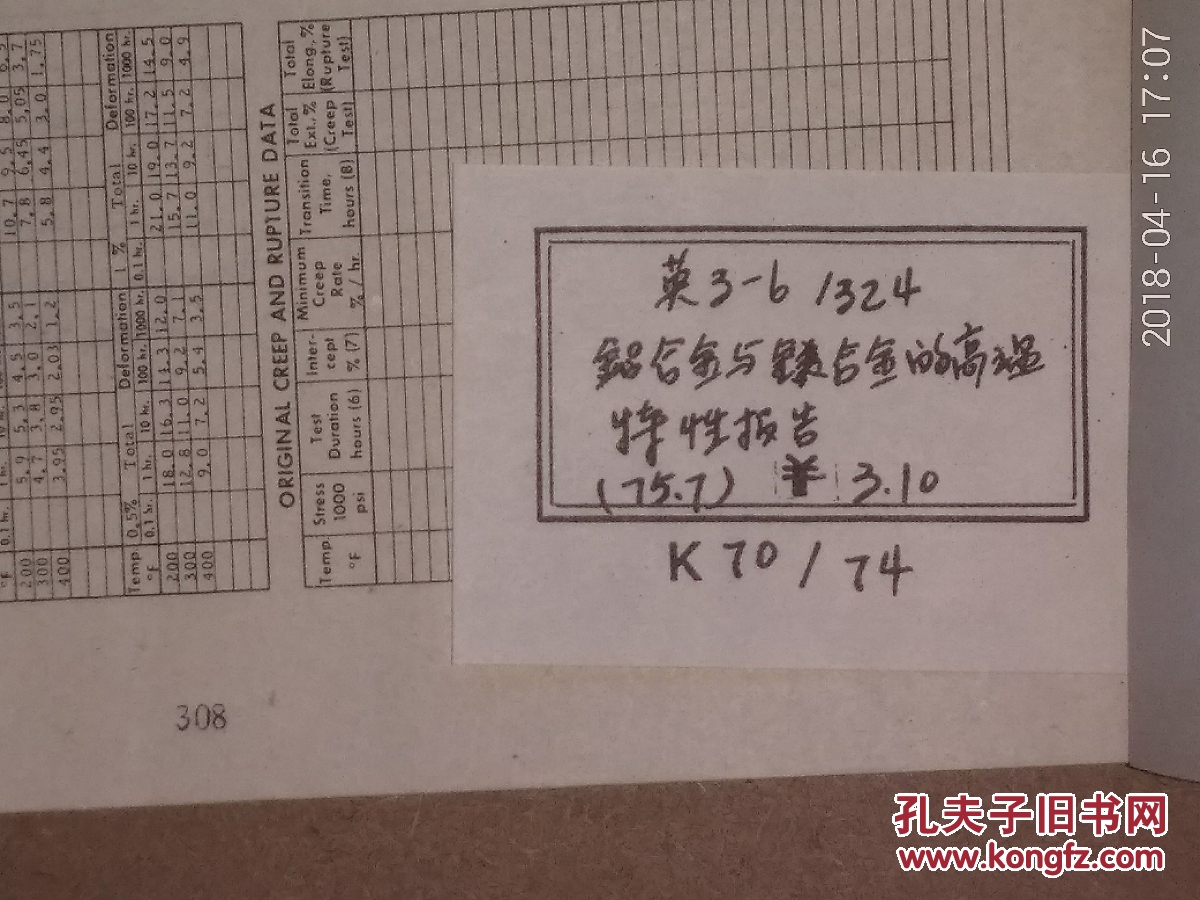 10.7 9.5 8.0 6.5
7.8 6.45 5.05 3.7
5.8 4.4 3.0 1.75
5.9 5.3 4.5 3.5
4.7 3.8 3.0 2.1
3.95 2.95 2.03 1.2
°F 0.1 hr. 1 hr. 10 hr.
200
300
400
Temp °F
0.5% Total Deformation
0.1 hr. 1 hr. 10 hr. 100 hr. 1000 hr.
1 % Total Deformation
0.1 hr. 1 hr. 10 hr. 100 hr. 1000 hr.
200 18.0 16.3 14.3 12.0 21.0 19.0 17.2 14.5
300 12.8 11.0 9.2 7.1 15.7 13.7 11.5 9.0
400 9.0 7.2 5.4 3.5 11.0 9.2 7.2 4.9
ORIGINAL CREEP AND RUPTURE DATA
Temp. °F
Stress 1000 psi
Test Duration hours (6)
Inter-cept % (7)
Minimum Creep Rate % / hr.
Transition Time, hours (8)
Total Ext., % (Creep Test)
Total Elong., % (Rupture Test)
英3-6/324
铝合金与镁合金的高温
特性报告
(75.7) ¥ 3.10
K70/74
308
2018-04-16 17:07
孔夫子旧书网
www.kongfz.com